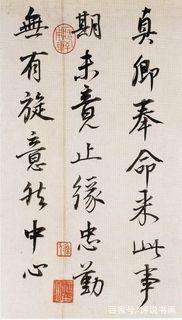 真卿奉命来此事
期未竟止缘忠勤
無有旋意然中心
百家号/评说书画